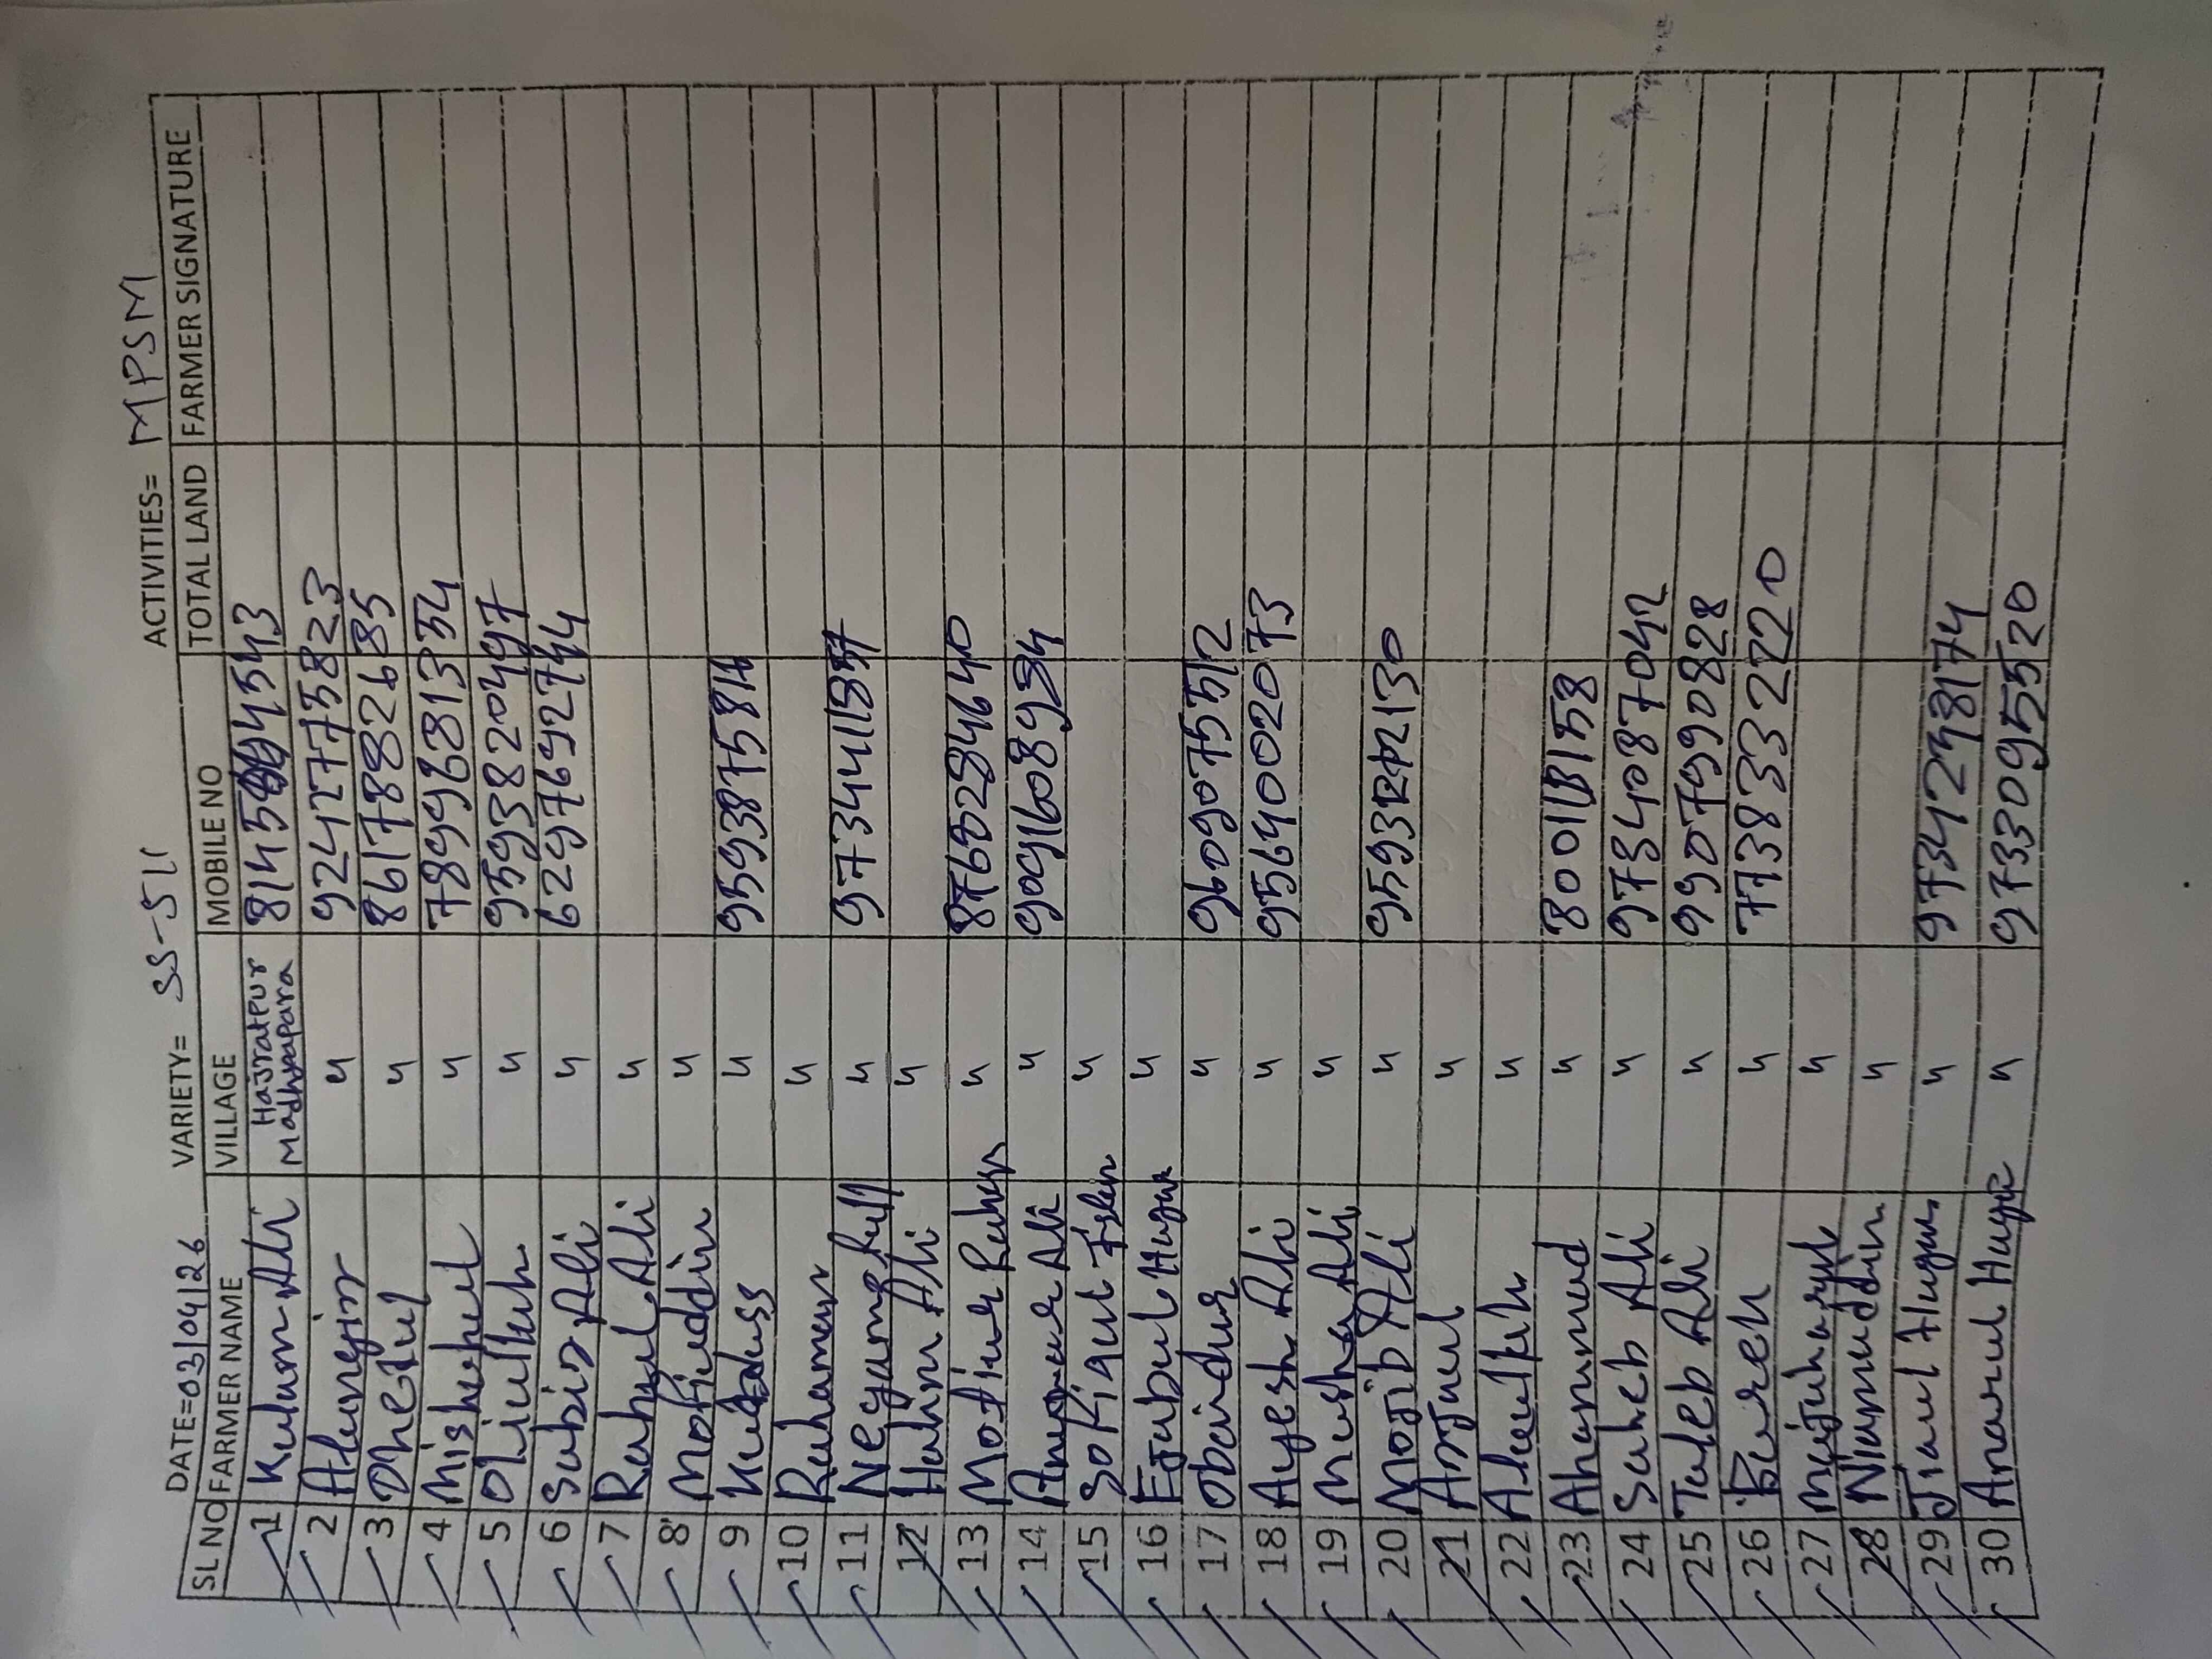 DATE=03/04/26 VARIETY= SS-511 ACTIVITIES= MPSM
SL NO FARMER NAME VILLAGE MOBILE NO TOTAL LAND FARMER SIGNATURE
1 Kalam Ali Hajratpur Madhyapara 8145 4543
2 Alamgir " 9242775823
3 " 8617882685
4 " 7899681334
5 " 9593820497
6 Sabir Ali " 6297692744
7 Rahul Ali "
8 Mofiuddin "
9 " 9593875814
10 Rahaman "
11 " 9734411857
12 Halim Ali "
13 Motiur " 8768284640
14 Anowar Ali " 9091608934
15 Sofiqul Islam "
16 Ejabul Huque "
17 Obaidur " 9609075512
18 Ayesh Ali " 9564002073
19 Musha Ali "
20 Mojib Ali " 9593 2130
21 Anjaul "
22 "
23 Ahammed " 8001 158
24 Saheb Ali " 9734087042
25 Taleb Ali " 9907990828
26 " 7738332220
27 "
28 Niamuddin "
29 Jiaul Huque " 9734238174
30 Anarul Huque " 9733095520